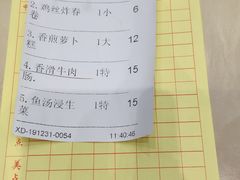 2. 鸡丝炸春 1小 6
卷
3. 香煎萝卜 1大 12
糕
4. 香滑牛肉 1特 15
肠.
5. 鱼汤浸生 1特 15
菜
XD-191231-0054 11:40:46
点
美
点